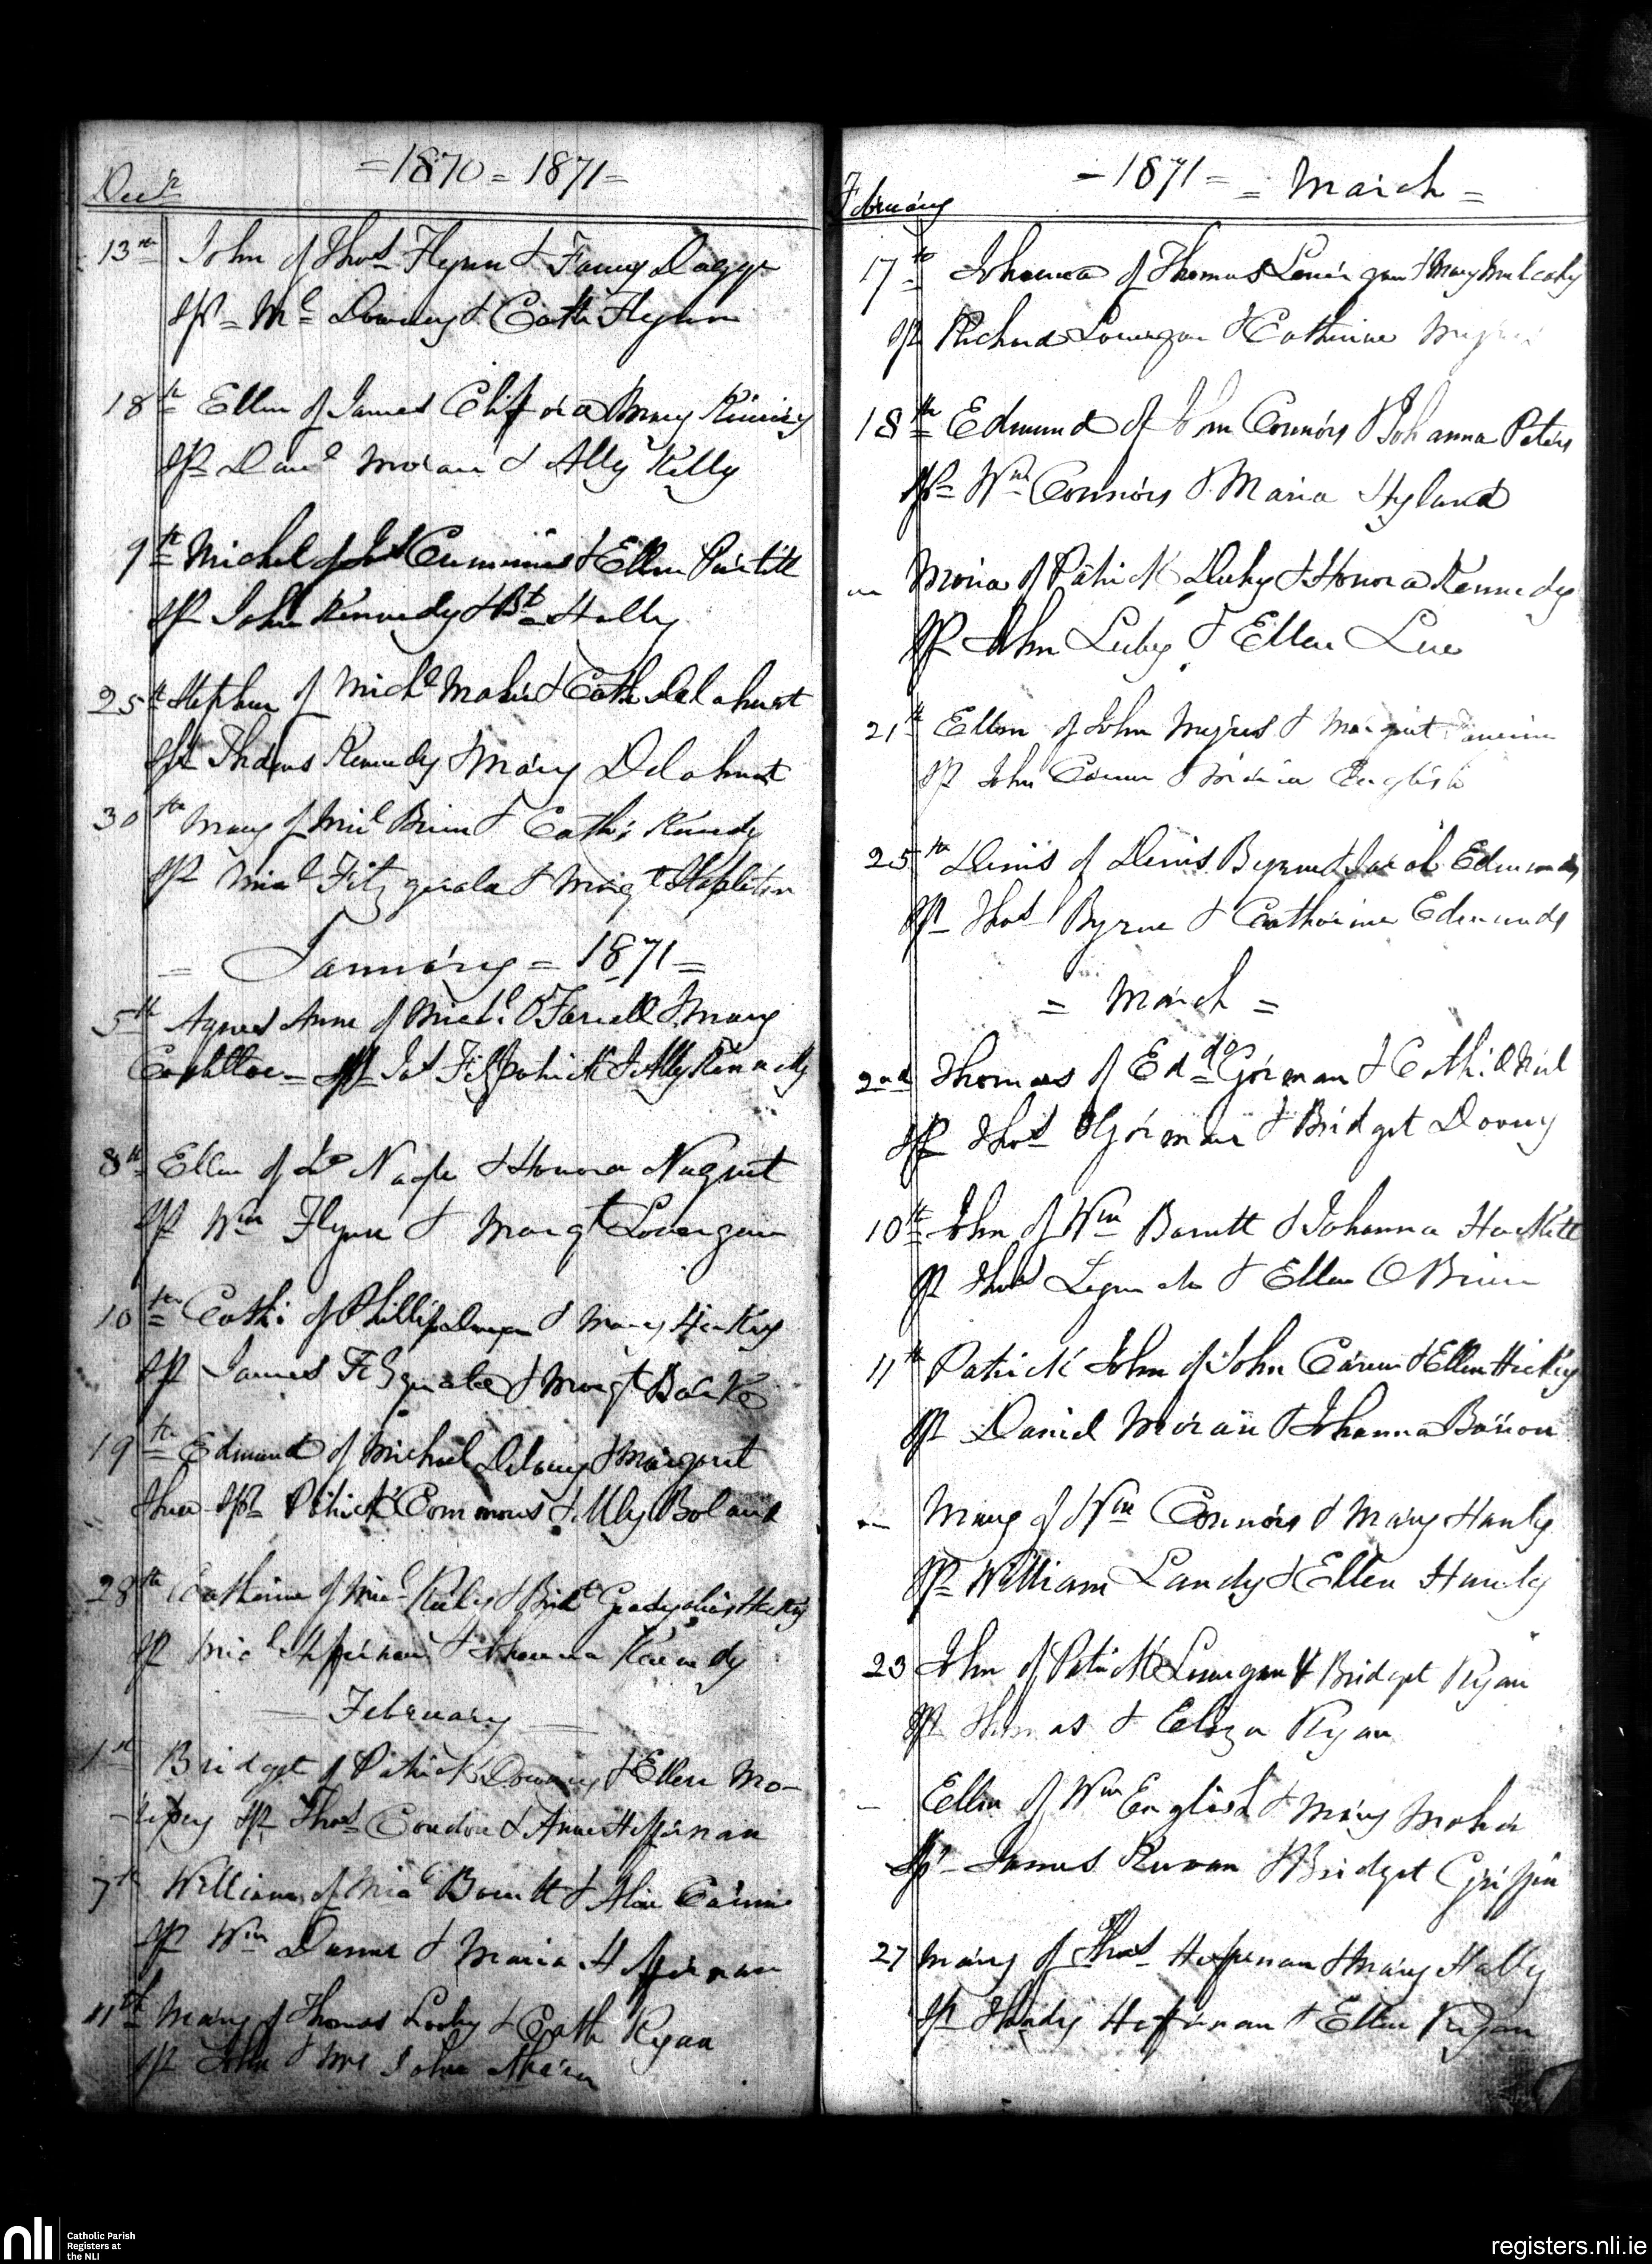 Decr
= 1870 = 1871 =
13th John of Thos Flynn & Fanny
Sps = Ml Downey & Cath Flynn
18th Ellen of James Mary
Sps Danl Moran & Ally Kelly
9th Michel of Jas Cummins & Ellen
Sps John Kennedy & Bt Hally
25th Stephen of Michl Maher & Cath Delahunt
Sps Thomas Kennedy & Mary Delahunt
30th Mary of Micl Brien & Cathe Kennedy
Sps Micl Fitzgerald & Margt Stapleton
= January = 1871 =
5th Agnes Anne of Michl O'Farrell & Mary
Sps Jas Fitzpatrick & Ally Kennedy
8th Ellen of Nagle & Honora Nugent
Sps Wm Flynn & Margt Lonergan
10th Cathe of Phillip & Mary Hickey
Sps James Fitzgerald & Margt Burke
19th Edmund of Michael Delany & Margaret
Shea Sps Patrick Commons & Boland
28th Catherine of Micl & Bridt Grady alias Hickey
Sps Micl Heffernan & Johanna Kennedy
February
1st Bridget of Patrick Downey & Ellen
Sps Thos Condon & Anne Heffernan
7th William of Micl Barrett & Alice
Sps Wm Dunne & Maria Heffernan
11th Mary of Thomas Looby & Cath Ryan
Sps John & Mrs John
February
= 1871 = = March =
17th Johanna of Thomas Lonergan & Mary Mulcahy
Sps Richard Lonergan & Catherine
18th Edmund of John Connors & Johanna Peters
Sps Wm Connors & Maria Hyland
Maria of Patrick & Honora Kennedy
Sps John Luby & Ellen
21st Ellen of John & Margaret
Sps John & Maria English
25th Denis of Denis Byrne & Edmunds
Sps Thos Byrne & Catherine Edmunds
= March =
2nd Thomas of Edd O'Gorman & Cath O'Neil
Sps Thos O'Gorman & Bridget
10th John of Wm Barrett & Johanna Hackett
Sps Thos & Ellen O'Brien
11th Patrick John of John & Ellen Hickey
Sps Daniel Moran & Johanna Barron
Mary of Wm Connors & Mary Hanly
Sps William Landy & Ellen Hanly
23 John of Patrick Lonergan & Bridget Ryan
Sps Thomas & Eliza Ryan
Ellen of Wm English & Mary Maher
Sps James & Bridget Griffin
27 Mary of Thos Heffernan & Mary Hally
Sps Heffernan & Ellen Ryan
nli
Catholic Parish
Registers at
the NLI
registers.nli.ie